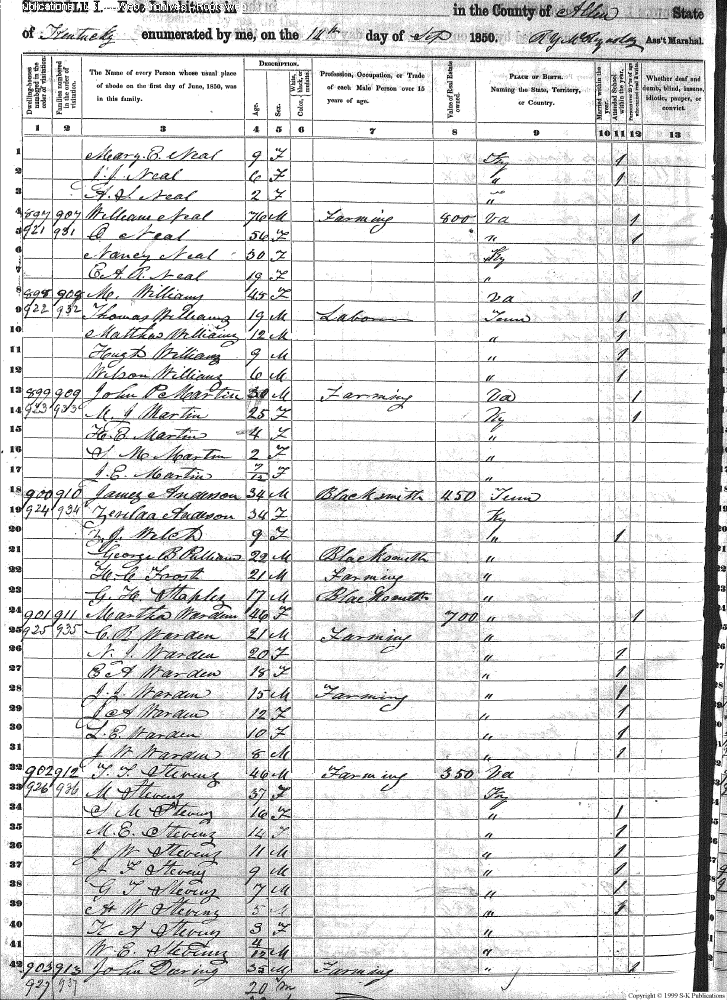 SCHEDULE I. Free Inhabitants in in the County of Allen State
of Kentucky enumerated by me, on the 14th day of Sep 1850. Ass't Marshal.
Dwelling-houses numbered in the order of visitation.
Families numbered in the order of visitation.
The Name of every Person whose usual place of abode on the first day of June, 1850, was in this family.
DESCRIPTION.
Age.
Sex.
White, black, or mulatto.
Color,
Profession, Occupation, or Trade of each Male Person over 15 years of age.
Value of Real Estate owned.
PLACE OF BIRTH. Naming the State, Territory, or Country.
Married within the year.
Attended School within the year.
Whether deaf and dumb, blind, insane, idiotic, pauper, or convict.
1 2 3 4 5 6 7 8 9 10 11 12 13
1 Mary E. Neal 9 F Ky 1
2 J. J. Neal 6 F " 1
3 A. S. Neal 2 F "
4 897 907 William Neal 76 M Farming 800 Va 1
5 921 931 Neal 56 F " 1
6 Nancy Neal 30 F Ky
7 E. A. R. Neal 19 F "
8 898 908 M. Williams 45 F Va 1
9 922 932 Thomas Williams 19 M Labor Tenn 1
10 Matthew Williams 12 M " 1
11 Hugh Williams 9 M " 1
12 Wilson Williams 6 M " 1
13 899 909 John P. Martin 30 M Farming Va 1
14 923 933 M. J. Martin 25 F Ky 1
15 H. E. Martin 4 F "
16 S M Martin 2 F "
17 J. E. Martin 7/12 F "
18 900 910 James Anderson 34 M Blacksmith 450 Tenn
19 924 934 Anderson 34 F Ky
20 J. Welch 9 F " 1
21 George B 22 M Blacksmith "
22 H. C Frost 21 M Farming "
23 G. H. Staples 17 M Blacksmith "
24 901 911 Martha Warden 46 F 700 " 1
25 925 935 C. B. Warden 21 M Farming "
26 N. J. Warden 20 F " 1
27 E A Warden 18 F " 1
28 J. J. Warden 15 M Farming " 1
29 J A Warden 12 F " 1
30 L. E. Warden 10 F " 1
31 J W Warden 8 M " 1
32 902 912 T. T. Stevens 46 M Farming 350 Va
33 926 936 M Stevens 37 F Ky
34 S M Stevens 16 F " 1
35 M. E. Stevens 14 F " 1
36 J W Stevens 11 M " 1
37 J F Stevens 9 M " 1
38 G T Stevens 7 M " 1
39 A W Stevens 5 M " 1
40 K A Stevens 3 F "
41 W. E. Stevens 4/12 M "
42 903 913 John 35 M Farming " 1
927 937 20
Copyright © 1999 S-K Publications